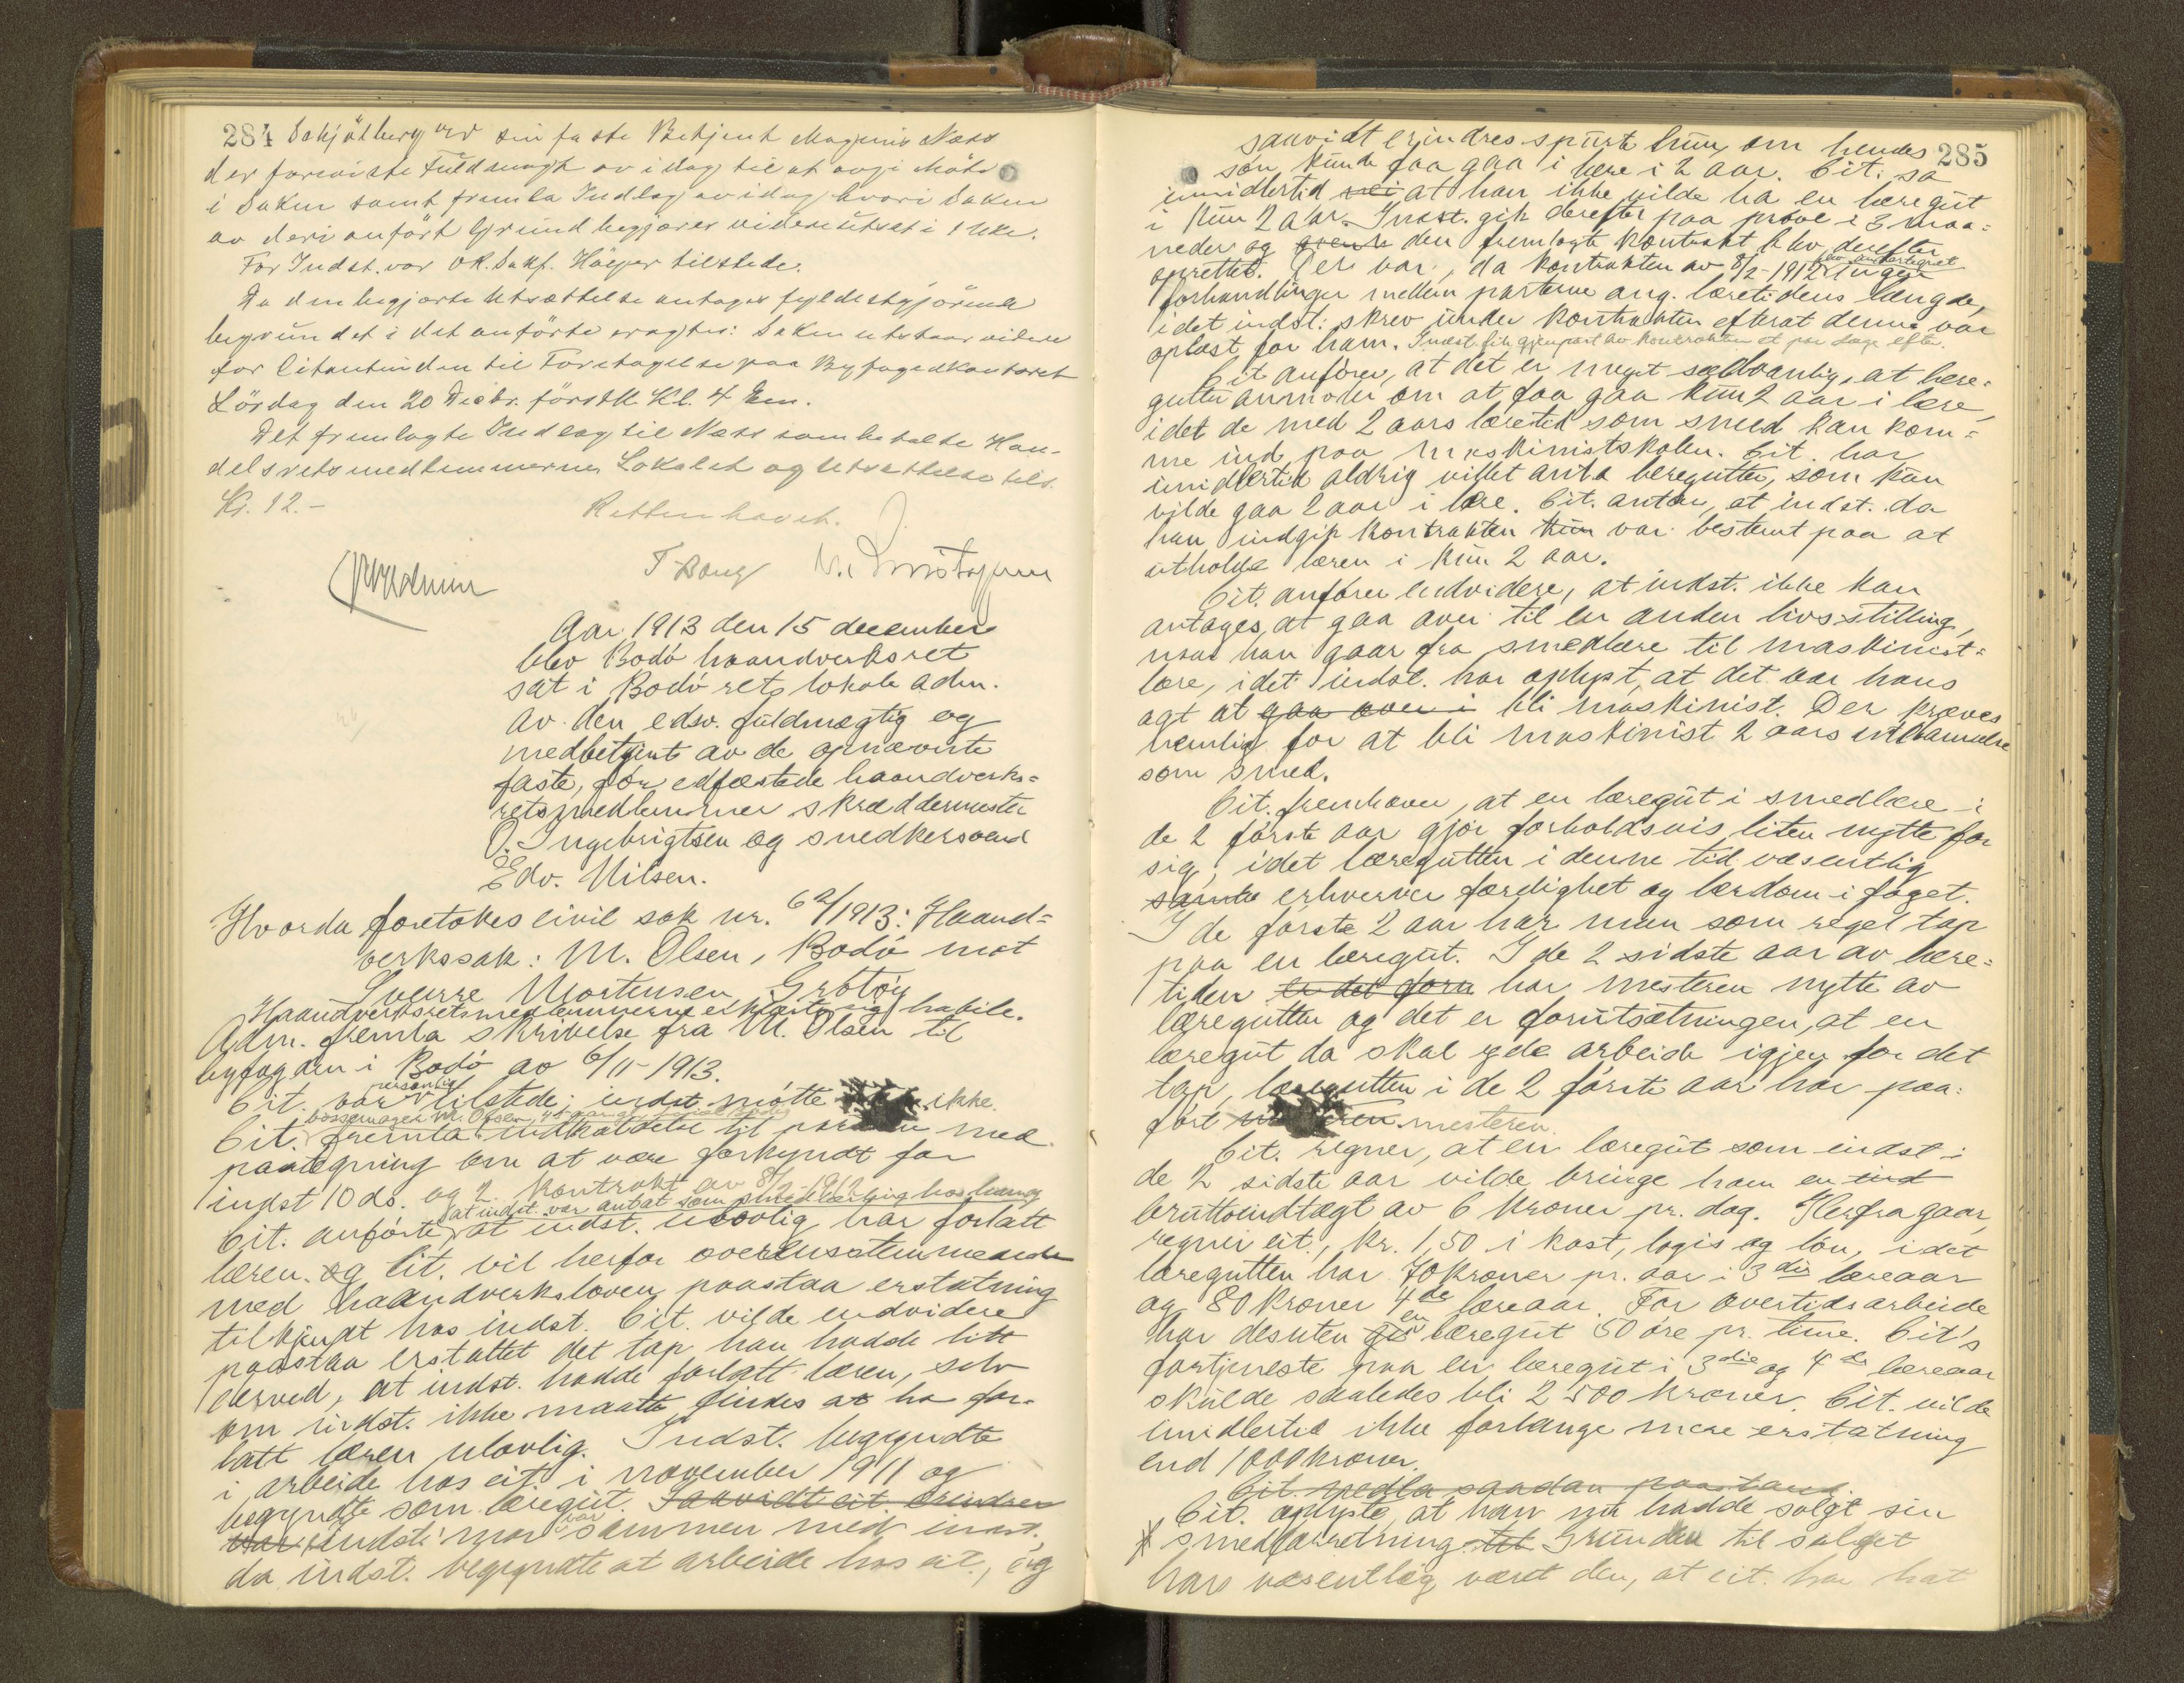 284 Sakjötberg ved sin faste Betjent Magnus Næss
der foreviste Fuldmagt av idag til at avgi Møte
i Saken samt fremla Indlæg av idag hvori Saken
av deri anført Grund begjæres videre utsat i 1 Uke.
For Indst. var OR.Sakf. Häyer tilstede.
Da den begjærte Utsættelse antages fyldestgjørende
begrundet i det anførte eragtes: Saken utstaar videre
for Citantinden til Foretagelse paa Byfogedkontoret
Lördag den 20 Decbr. förstk. Kl. 4 Em.
Det fremlagte Indlæg til Næss som betalte Han-
delsretsmedlemmerne, Lokalet og Utsættelse tils.
Kr. 12.-
Retten hævet.
T Bang
Aar 1913 den 15 december
blev Bodö haandverksret
sat i Bodö rets lokale adm.
av den edsv. fuldmægtig og
medbetjent av de opnævnte
faste, før edfæstede haandverks=
retsmedlemmer skræddermester
O. Ingebrigtsen og snedkersvend
Edv. Nilsen.
Hvorda foretokes civil sak nr. 62/1913: Haand=
verkssak: M. Olsen, Bodö mot
Sverre Mortensen, Grötöy
Haandverksretsmedlemmerne erklærte sig habile.
Adm. fremla skrivelse fra M. Olsen til
byfogden i Bodö av 6/11-1913.
Cit. var personlig tilstede; indst møtte ikke.
bössemager M. Olsen
Cit. fremla indkaldelse til med
paategning om at være forkyndt for
indst 10 ds. og 2. Kontrakt av 8/2-1912
at indst. var antat som smedlærling hos ham og
Cit. anførte at indst. ulovlig har forlatt
læren. og Cit. vil herfor overensstemmende
med haandverksloven paastaa erstatning
tilkjendt hos indst. Cit. vilde endvidere
paastaa erstattet det tap han hadde litt
derved, at indst. hadde forlatt læren, selv
om indst. ikke maatte findes at ha for-
latt læren ulovlig. Indst. begyndte
i arbeide hos cit. i november 1911 og
begyndte som læregut. Saavidt cit. erindrer
var indsts mor var sammen med indst.
da indst. begyndte at arbeide hos cit., og
285
saavidt erindres spurte hun om hendes
søn kunde faa gaa i lære i 2 aar. Cit. sa
imidlertid nei at han ikke vilde ha en læregut
i kun 2 aar. Indst. gik derefter paa prøve i 3 maa=
neder og den fremlagte kontrakt blev derefter
oprettet. Der var, da kontrakten av 8/2-1912 blev undertegnet ingen
forhandlinger mellem parterne ang. læretidens længde,
idet indst. skrev under kontrakten efterat denne var
oplæst for ham. Indst. fik gjenpart av kontrakten et par dage efter.
Cit anfører, at det er meget sedvanlig, at lære=
gutter anmoder om at faa gaa kun 2 aar i lære,
idet de med 2 aars læretid som smed kan kom=
me ind paa maskinistskolen. Cit. har
imidlertid aldrig villet anta læregutter, som kun
vilde gaa 2 aar i lære. Cit. antar, at indst. da
han indgik kontrakten kun var bestemt paa at
utholde læren i kun 2 aar.
Cit. anfører endvidere, at indst. ikke kan
antages, at gaa over til en anden livsstilling,
naar han gaar fra smedlære til maskinist=
lære, idet indst. har oplyst, at det var hans
agt at gaa over i bli maskinist. Der kræves
nemlig for at bli maskinist 2 aars utdannelse
som smed.
Cit. fremhæver, at en læregut i smedlære i
de 2 første aar gjør forholdsvis liten nytte for
sig, idet læregutten i denne tid væsentlig
samle erhverver færdighet og lærdom i faget.
I de første 2 aar har man som regel tap
paa en læregut. I de 2 sidste aar av lære=
tiden er det førn har mesteren nytte av
læregutten og det er forutsætningen, at en
læregut da skal yde arbeide igjen for det
tap, læregutten i de 2 første aar har paa-
ført mesteren.
Cit. regner, at en læregut som indst. i
de 2 sidste aar vilde bringe ham en ind
bruttoindtægt av 6 kroner pr. dag. Herfra gaar,
regner cit., kr. 1,50 i kost, logis og løn, idet
læregutten har 70 kroner pr. aar i 3die læreaar
og 80 kroner 4de læreaar. For overtidsarbeide
har desuten en læregut 50 øre pr. time. Cit's
fortjeneste paa en læregut i 3die og 4de læreaar
skulde saaledes bli 2500 kroner. Cit. vilde
imidlertid ikke forlange mere erstatning
end 1000 kroner.
Cit. nedla saadan paastand.
Cit. oplyste, at han nu hadde solgt sin
smedforretning. Grunden til salget
har væsentlig været den, at cit. har hat